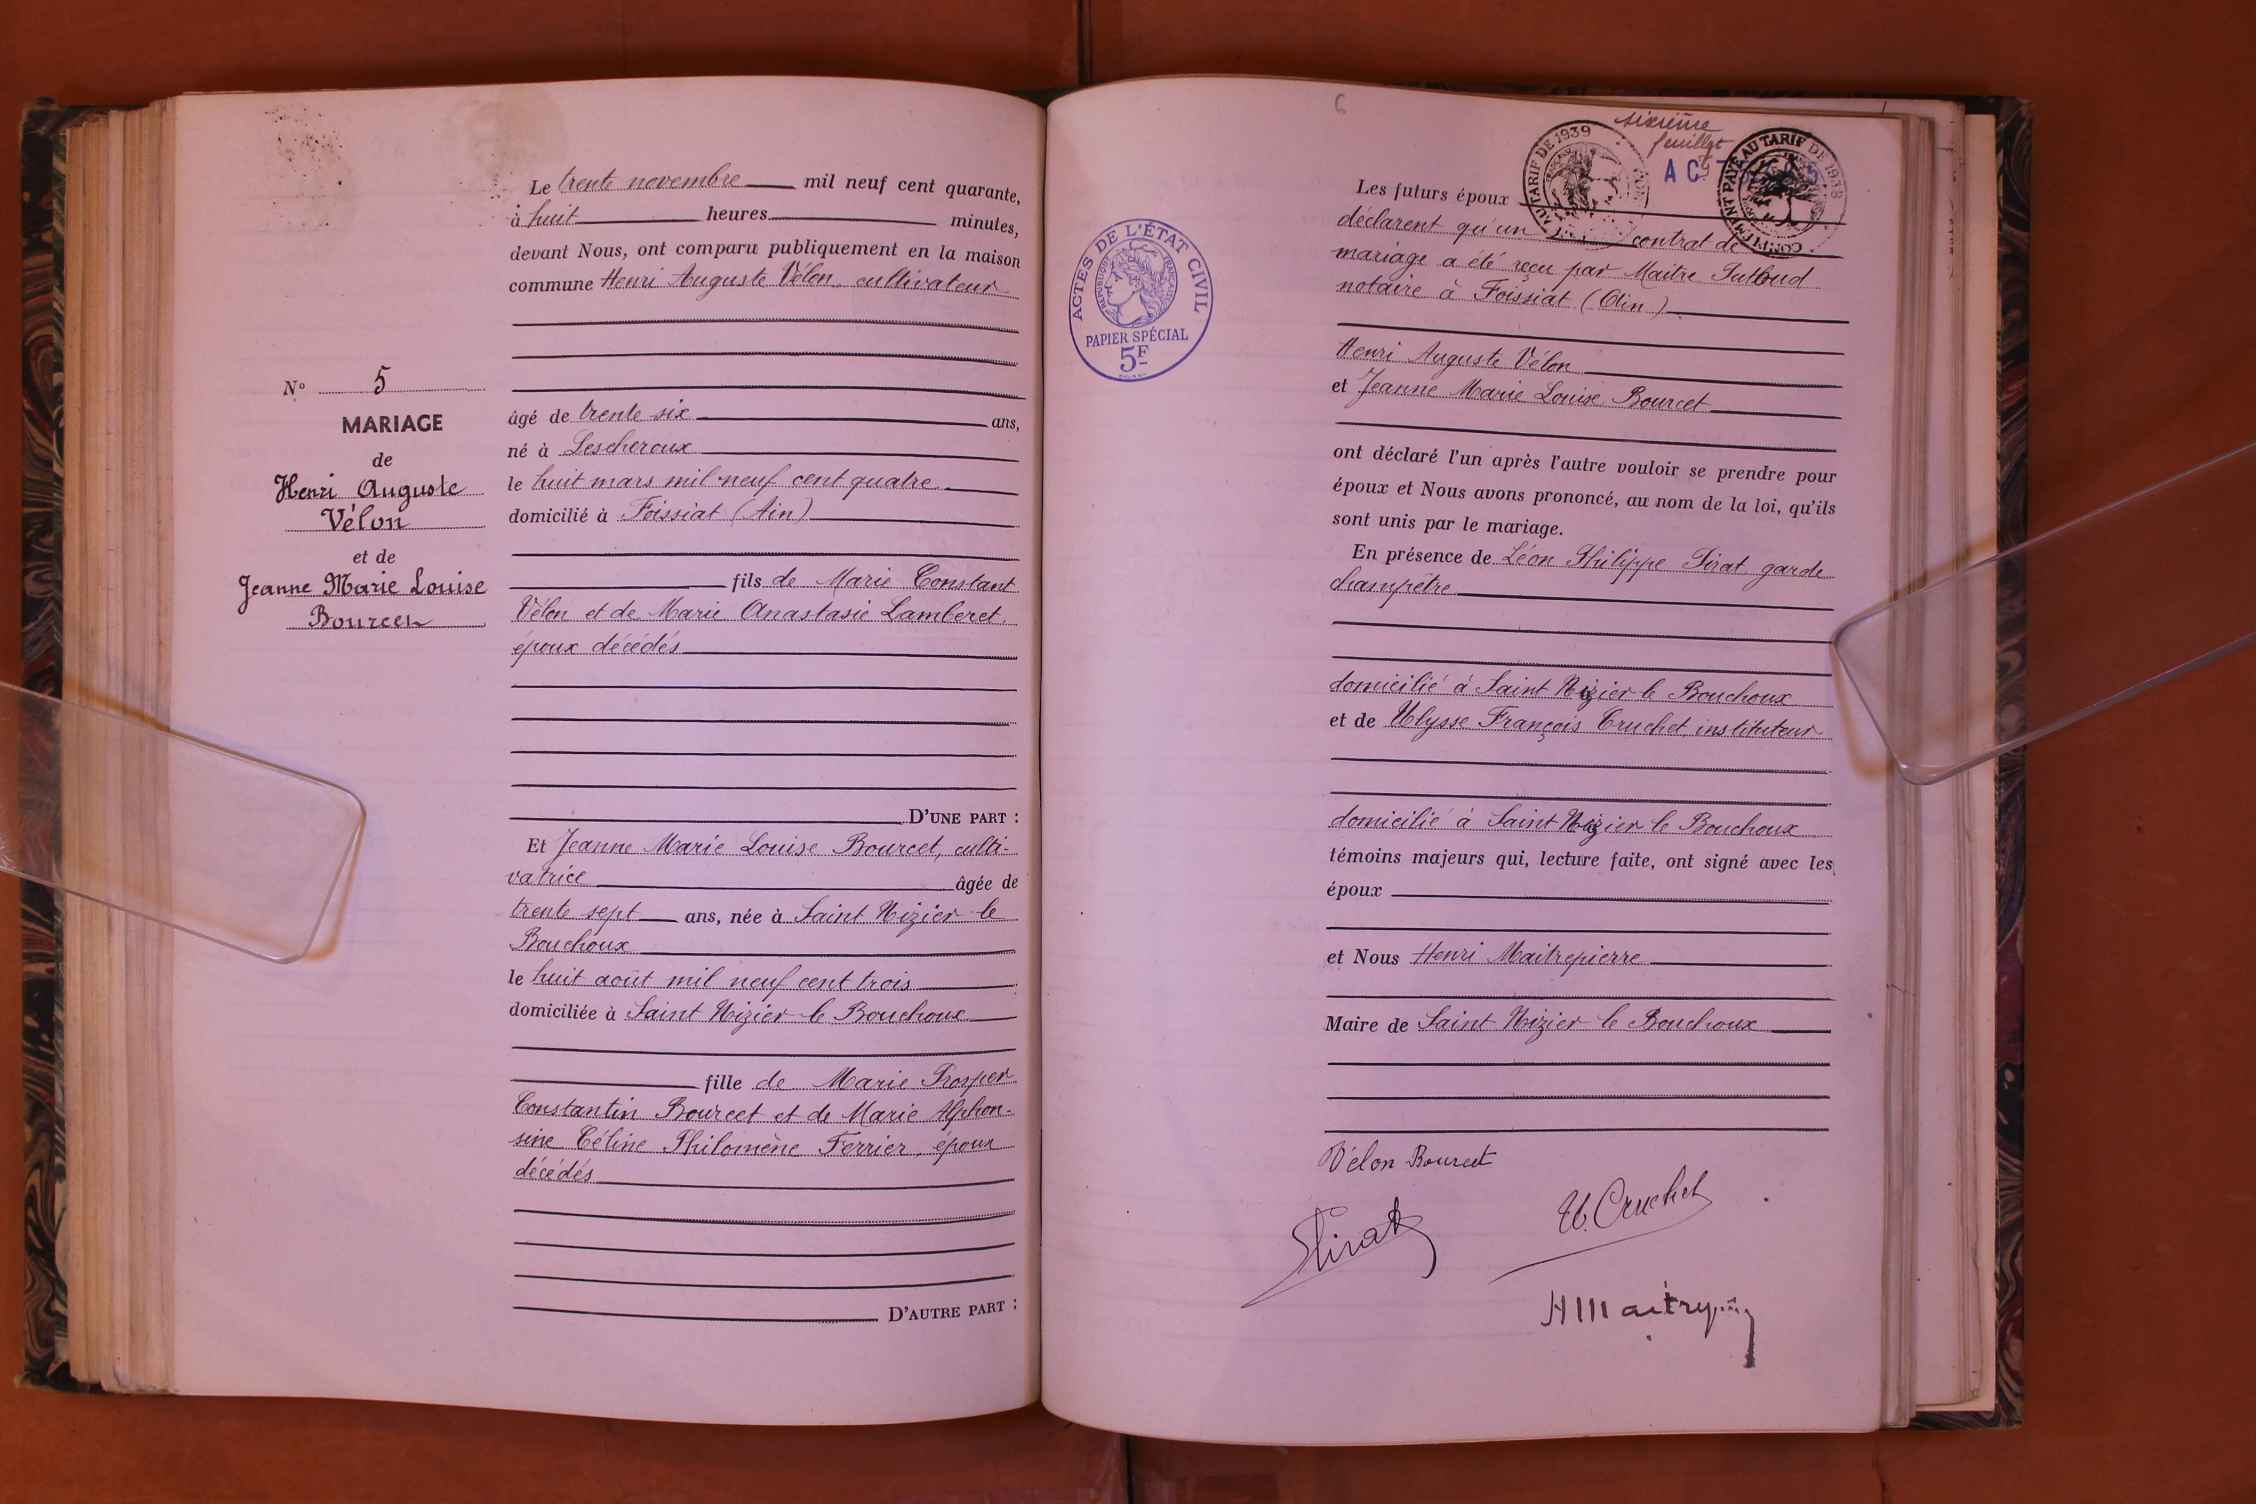 Le trente novembre mil neuf cent quarante,
à huit heures minutes,
devant Nous, ont comparu publiquement en la maison
commune Henri Auguste Vélon, cultivateur
N° 5
MARIAGE
de
Henri Auguste
Vélon
et de
Jeanne Marie Louise
Bourcet
âgé de trente six ans,
né à Lescheroux
le huit mars mil neuf cent quatre
domicilié à Foissiat (Ain)
fils de Marie Constant
Vélon et de Marie Anastasie Lamberet,
époux décédés
D'UNE PART :
Et Jeanne Marie Louise Bourcet, culti-
vatrice âgée de
trente sept ans, née à Saint Nizier le
Bouchoux
le huit août mil neuf cent trois
domiciliée à Saint Nizier le Bouchoux
fille de Marie Prosper
Constantin Bourcet et de Marie Alphon-
sine Céline Philomène Ferrier, époux
décédés
D'AUTRE PART :
6
sixième
feuillet
AU TARIF DE 1939
AC
PAYÉ AU TARIF DE 1938
ACTES DE L'ÉTAT CIVIL
RÉPUBLIQUE FRANÇAISE
PAPIER SPÉCIAL
5F
Les futurs époux
déclarent qu'un contrat de
mariage a été reçu par Maitre
notaire à Foissiat (Ain)
Henri Auguste Vélon
et Jeanne Marie Louise Bourcet
ont déclaré l'un après l'autre vouloir se prendre pour
époux et Nous avons prononcé, au nom de la loi, qu'ils
sont unis par le mariage.
En présence de Léon Philippe Pirat, garde
champêtre
domicilié à Saint Nizier le Bouchoux
et de Ulysse François Cruchet, instituteur
domicilié à Saint Nizier le Bouchoux
témoins majeurs qui, lecture faite, ont signé avec les
époux
et Nous Henri Maitrepierre
Maire de Saint Nizier le Bouchoux
Vélon Bourcet
Pirat
U. Cruchet
H Maitrepierre